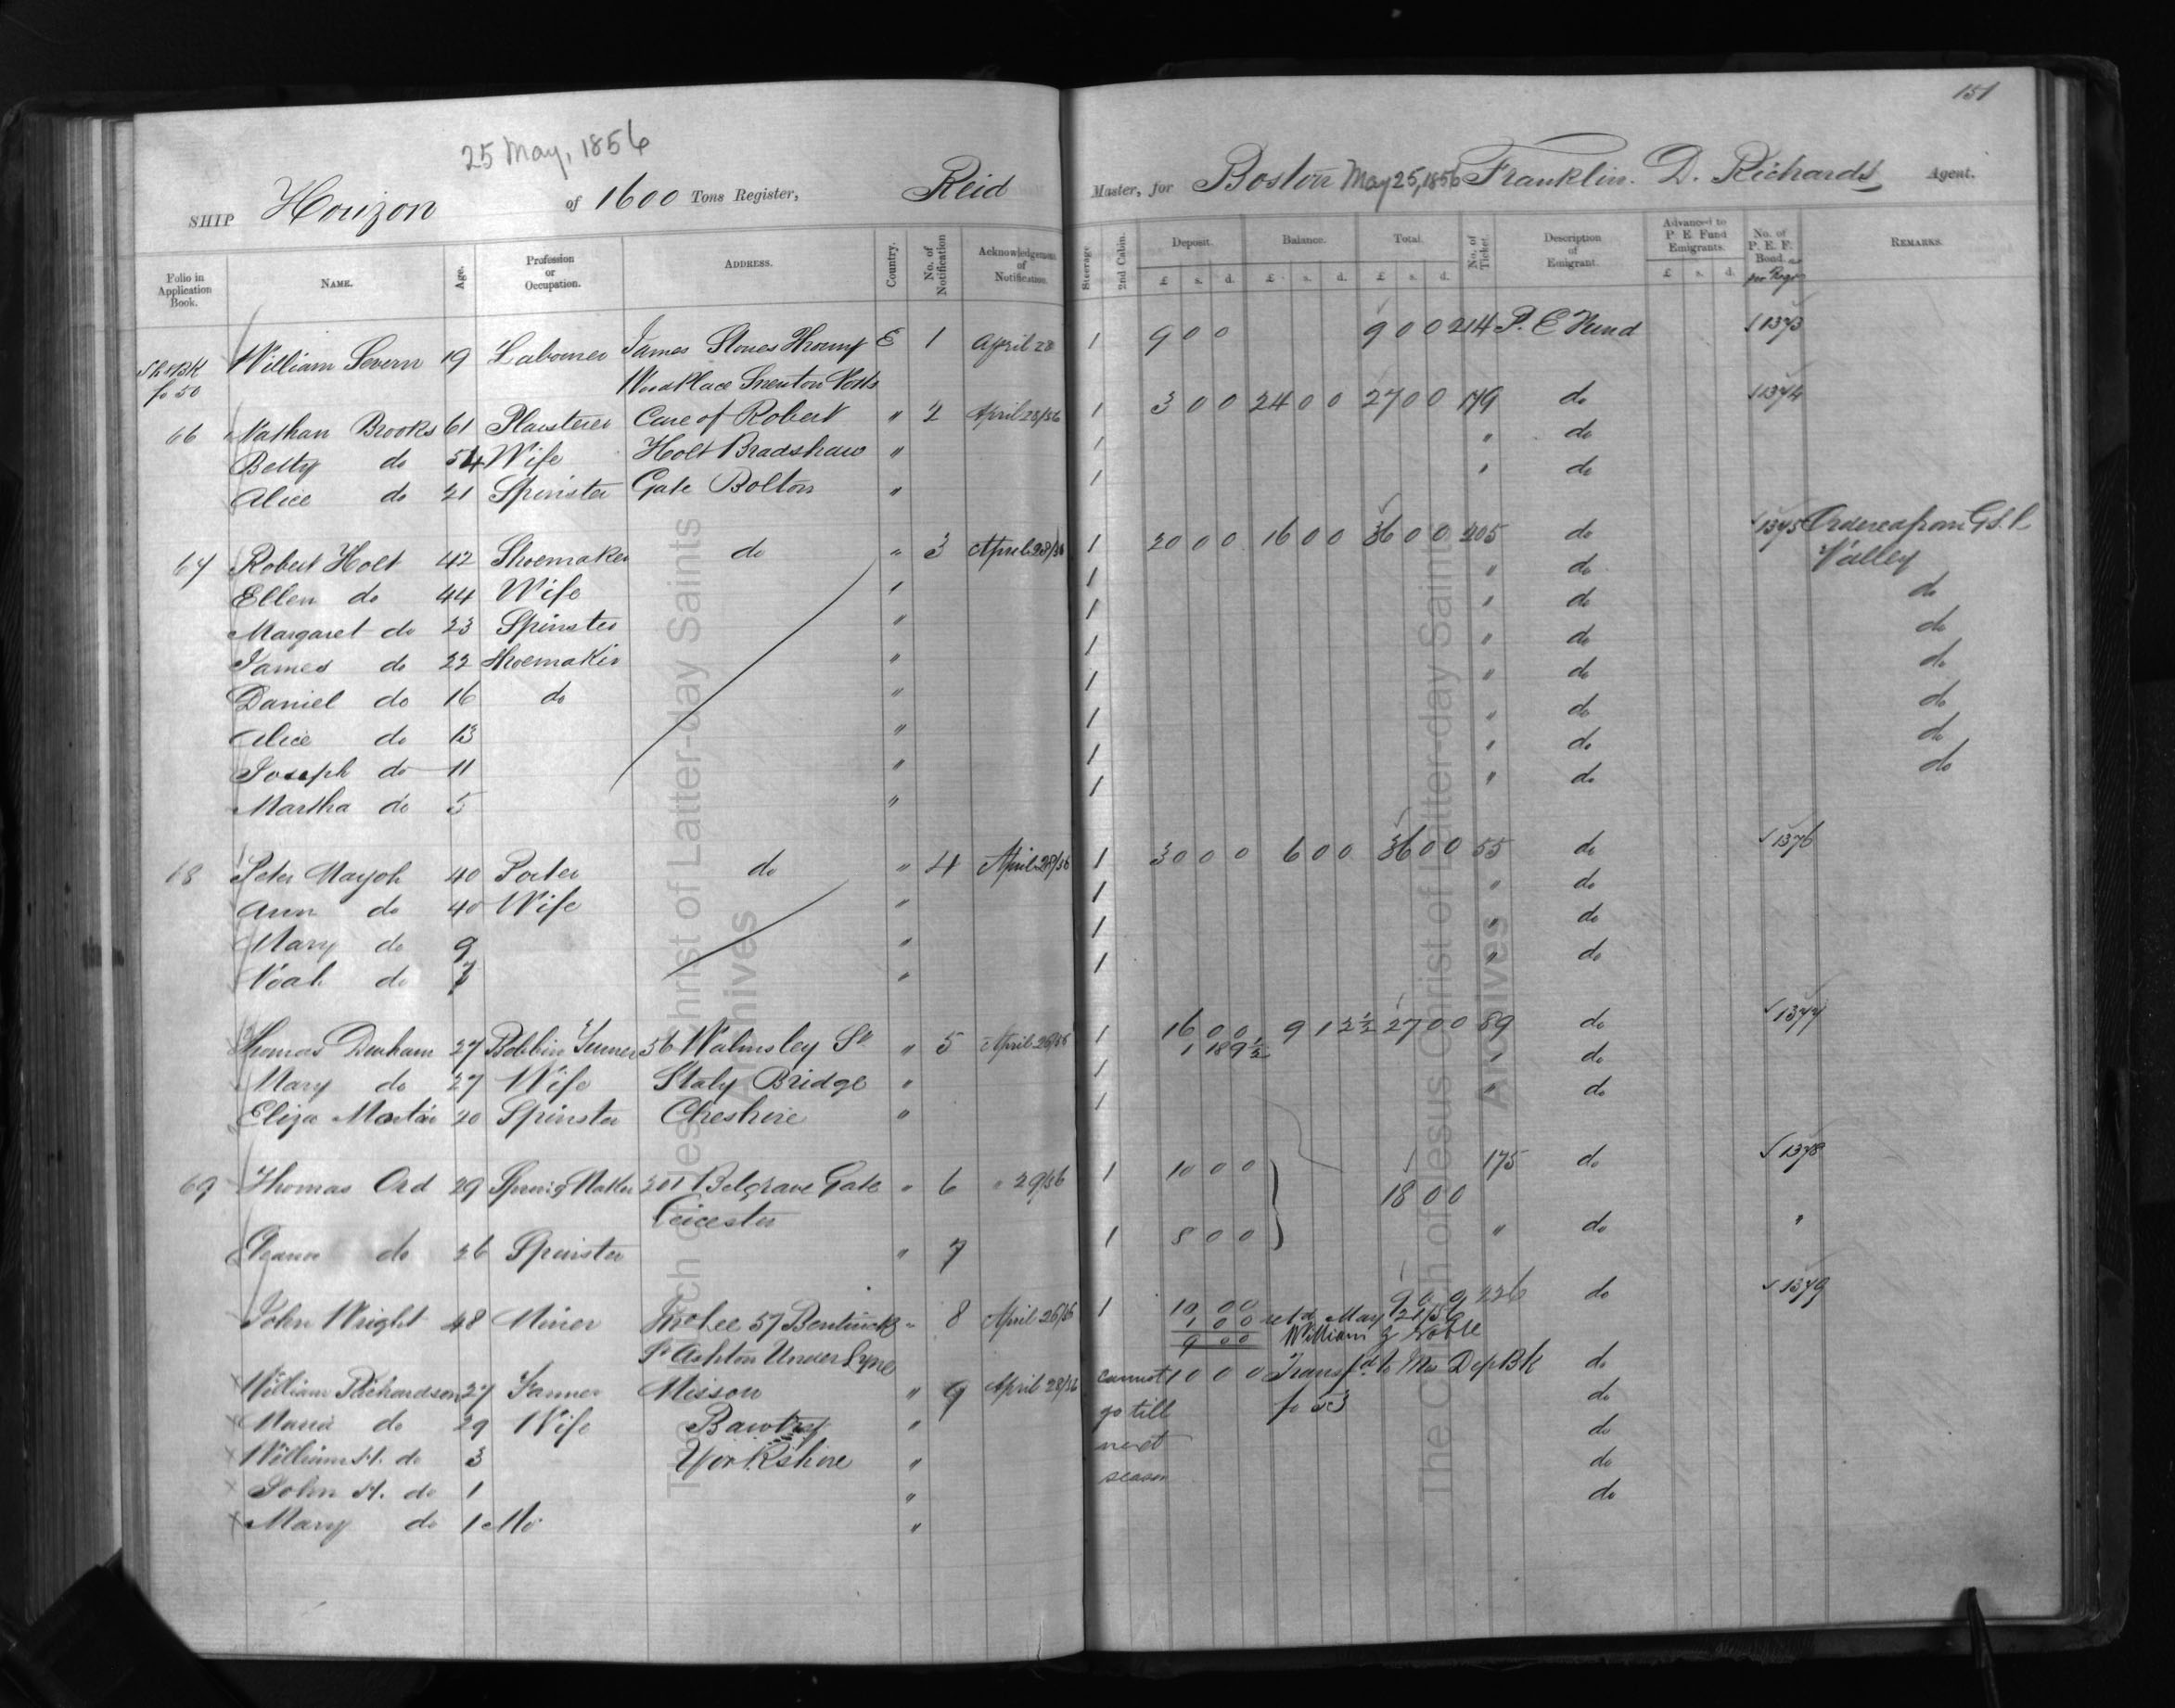 151
25 May, 1856
SHIP Horizon of 1600 Tons Register, Reid Master, for Boston May 25, 1856 Franklin. D. Richards Agent.
Folio in Application Book. NAME. Age. Profession or Occupation. ADDRESS. Country. No. of Notification Acknowledgement of Notification. Steerage 2nd Cabin. Deposit. £ s. d. Balance. £ s. d. Total. £ s. d. No. of Ticket. Description of Emigrant. Advanced to P. E. Fund Emigrants. £ s. d. No. of P. E. F. Bond. REMARKS.
fo 50 William Severn 19 Labourer James Stones E 1 April 28 1 9 0 0 9 0 0 214 P. E Fund 1373
Place Snenton Notts
66 Nathan Brooks 61 Plasterer Care of Robert " 2 April 28/56 1 3 0 0 24 0 0 27 0 0 179 do 1374
Betty do 54 Wife Holt Bradshaw " 1 " do
Alice do 21 Spinster Gate Bolton " 1 " do
67 Robert Holt 42 Shoemaker do " 3 April 28/56 1 20 0 0 16 0 0 36 0 0 205 do 1375 Ordered from G. S. L
Valley
Ellen do 44 Wife " 1 " do do
Margaret do 23 Spinster " 1 " do do
James do 22 Shoemaker " 1 " do do
Daniel do 16 do " 1 " do do
Alice do 13 " 1 " do do
Joseph do 11 " 1 " do do
Martha do 5 " 1 " do
68 Peter Mayoh 40 Porter do " 4 April 28/56 1 30 0 0 6 0 0 36 0 0 55 do 1376
Ann do 40 Wife " 1 " do
Mary do 9 " 1 " do
Noah do 7 " 1 " do
Thomas Durham 27 Bobbin Turner 56 Walmsley St " 5 April 26/56 1 16 0 0 9 1 2½ 27 0 0 89 do 1377
1 18 9½
Mary do 27 Wife Staly Bridge " 1 " do
Eliza Martin 20 Spinster Cheshire " 1 " do
69 Thomas Ord 29 Spring Maker 201 Belgrave Gate " 6 " 29/56 1 10 0 0 18 0 0 175 do 1378
Leicester
Eleanor do 26 Spinster " 7 1 8 0 0 " do "
John Wright 48 Miner Jno Lee 57 Bentinck " 8 April 26/56 1 10 0 0 9 0 0 226 do 1379
1 0 0 retd May 21/56
9 0 0 William G Noble
St Ashton Under Lyne
William Richardson 27 Farmer Misson " 9 April 28/56 cannot 10 0 0 Transfd to Mo Dep BK do
Maria do 29 Wife Bawtry " go till fo 53 do
William H. do 3 Yorkshire " next do
John H. do 1 " season do
Mary do 1 Mo " do
The Church of Jesus Christ of Latter-day Saints
Archives
The Church of Jesus Christ of Latter-day Saints
Archives